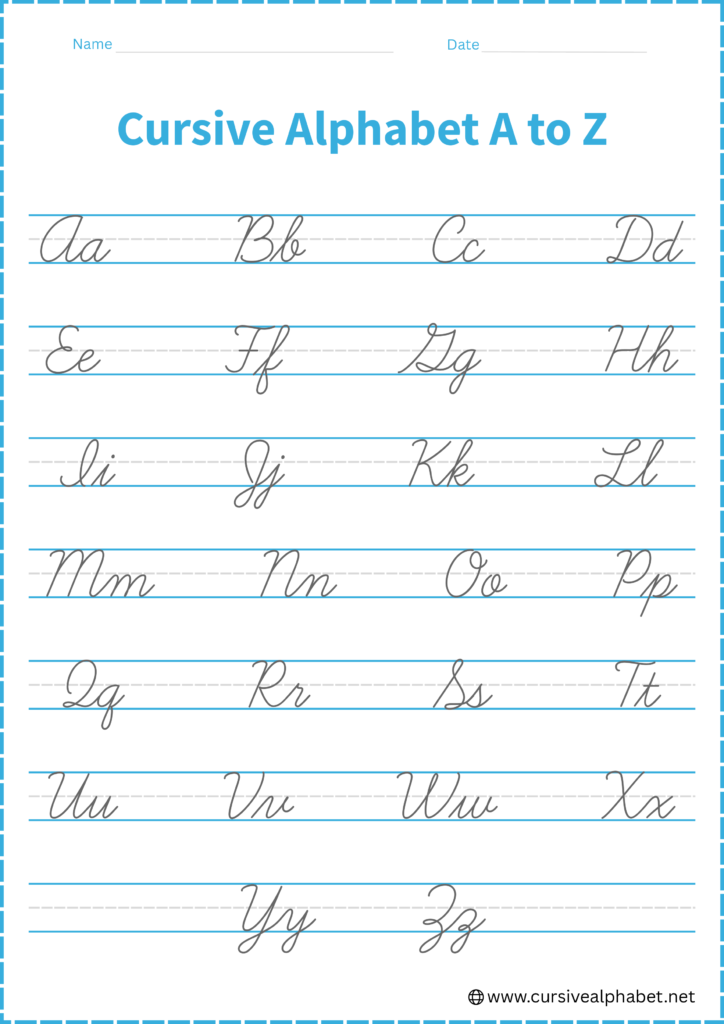 Name Date
Cursive Alphabet A to Z
Aa Bb Cc Dd
Ee Ff Gg Hh
Ii Jj Kk Ll
Mm Nn Oo Pp
Qq Rr Ss Tt
Uu Vv Ww Xx
Yy Zz
www.cursivealphabet.net